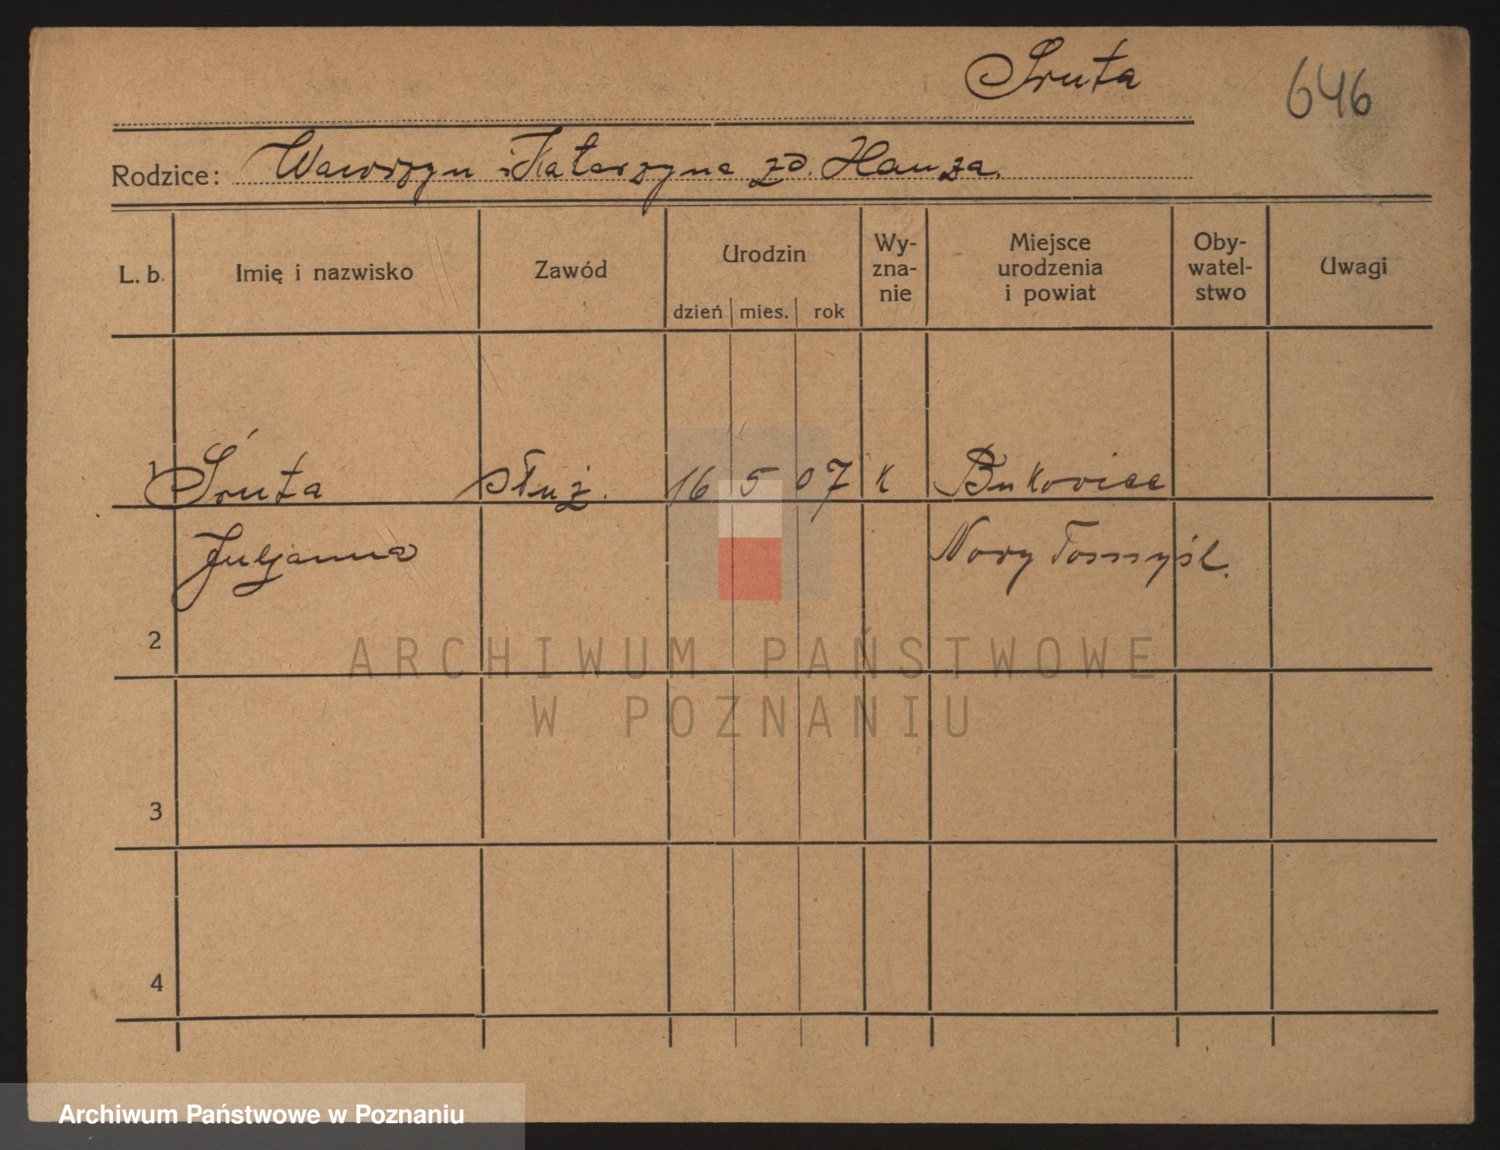 Śruta
646
Rodzice: Wawrzyn i Katarzyna zd. Hauza.
L. b. Imię i nazwisko Zawód Urodzin dzień mies. rok Wy-zna-nie Miejsce urodzenia i powiat Oby-watel-stwo Uwagi
1 Śruta służ. 16 5 07 k Bukowiec
Juljanna Nowy Tomyśl.
2
ARCHIWUM PAŃSTWOWE
W POZNANIU
3
4
Archiwum Państwowe w Poznaniu